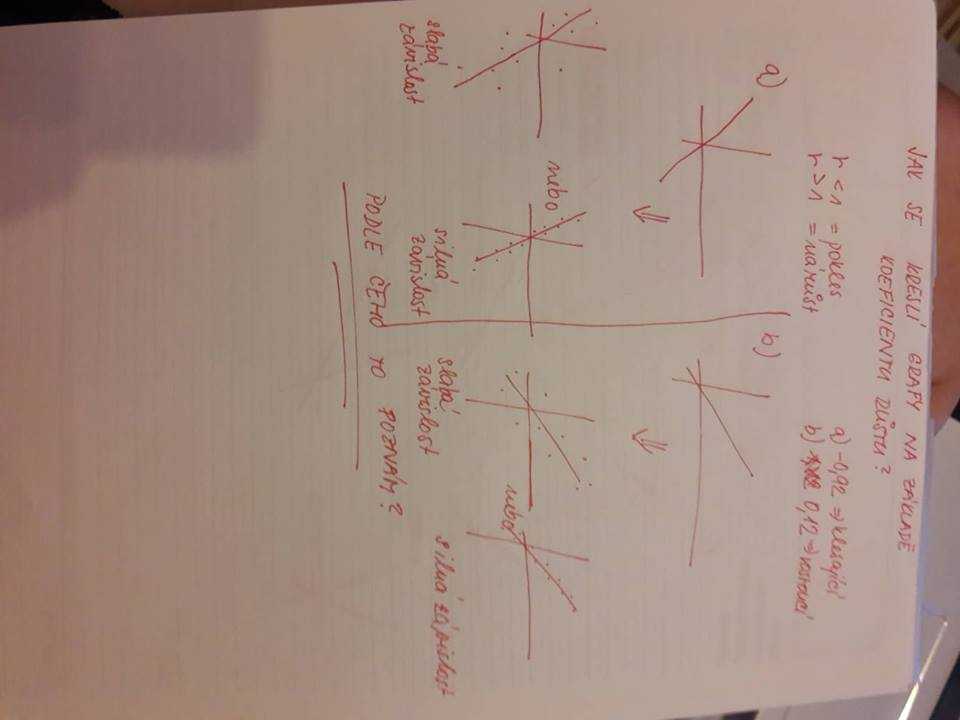 JAK SE KRESLÍ GRAFY NA ZÁKLADĚ
KOEFICIENTU RŮSTU?
r < 1 = pokles
r > 1 = nárůst
a) -0,92 => klesající
b) 0,12 => rostoucí
a)
b)
nebo
nebo
slabá
závislost
silná
závislost
slabá
závislost
silná závislost
PODLE ČEHO TO POZNÁM?